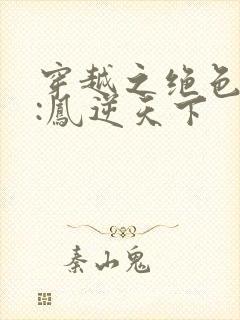 穿越之绝色
:凤逆天下
秦山鬼